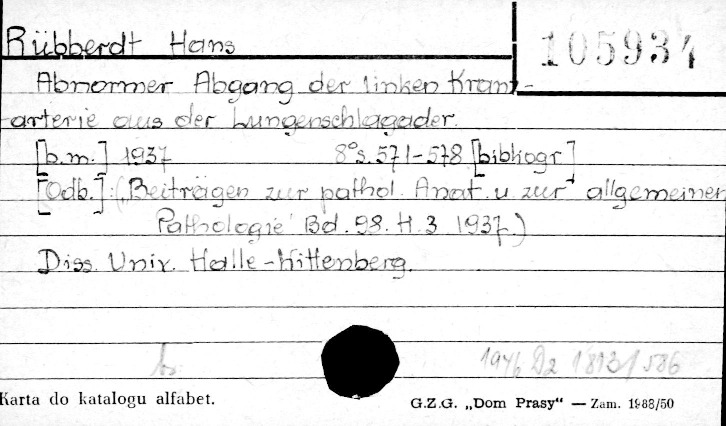 Rübberdt Hans
105934
Abnormer Abgang der linken Kranz-
arterie aus der Lungenschlagader.
[b.m.] 1937 8° s. 571-578 [bibliogr.]
[Odb.]: („Beiträgen zur pathol. Anat. u. zur allgemeinen
Pathologie" Bd. 98. H. 3 1937.)
Diss. Univ. Halle-Wittenberg.
1946 D2 1813/586
Karta do katalogu alfabet.
G.Z.G. „Dom Prasy" — Zam. 1988/50